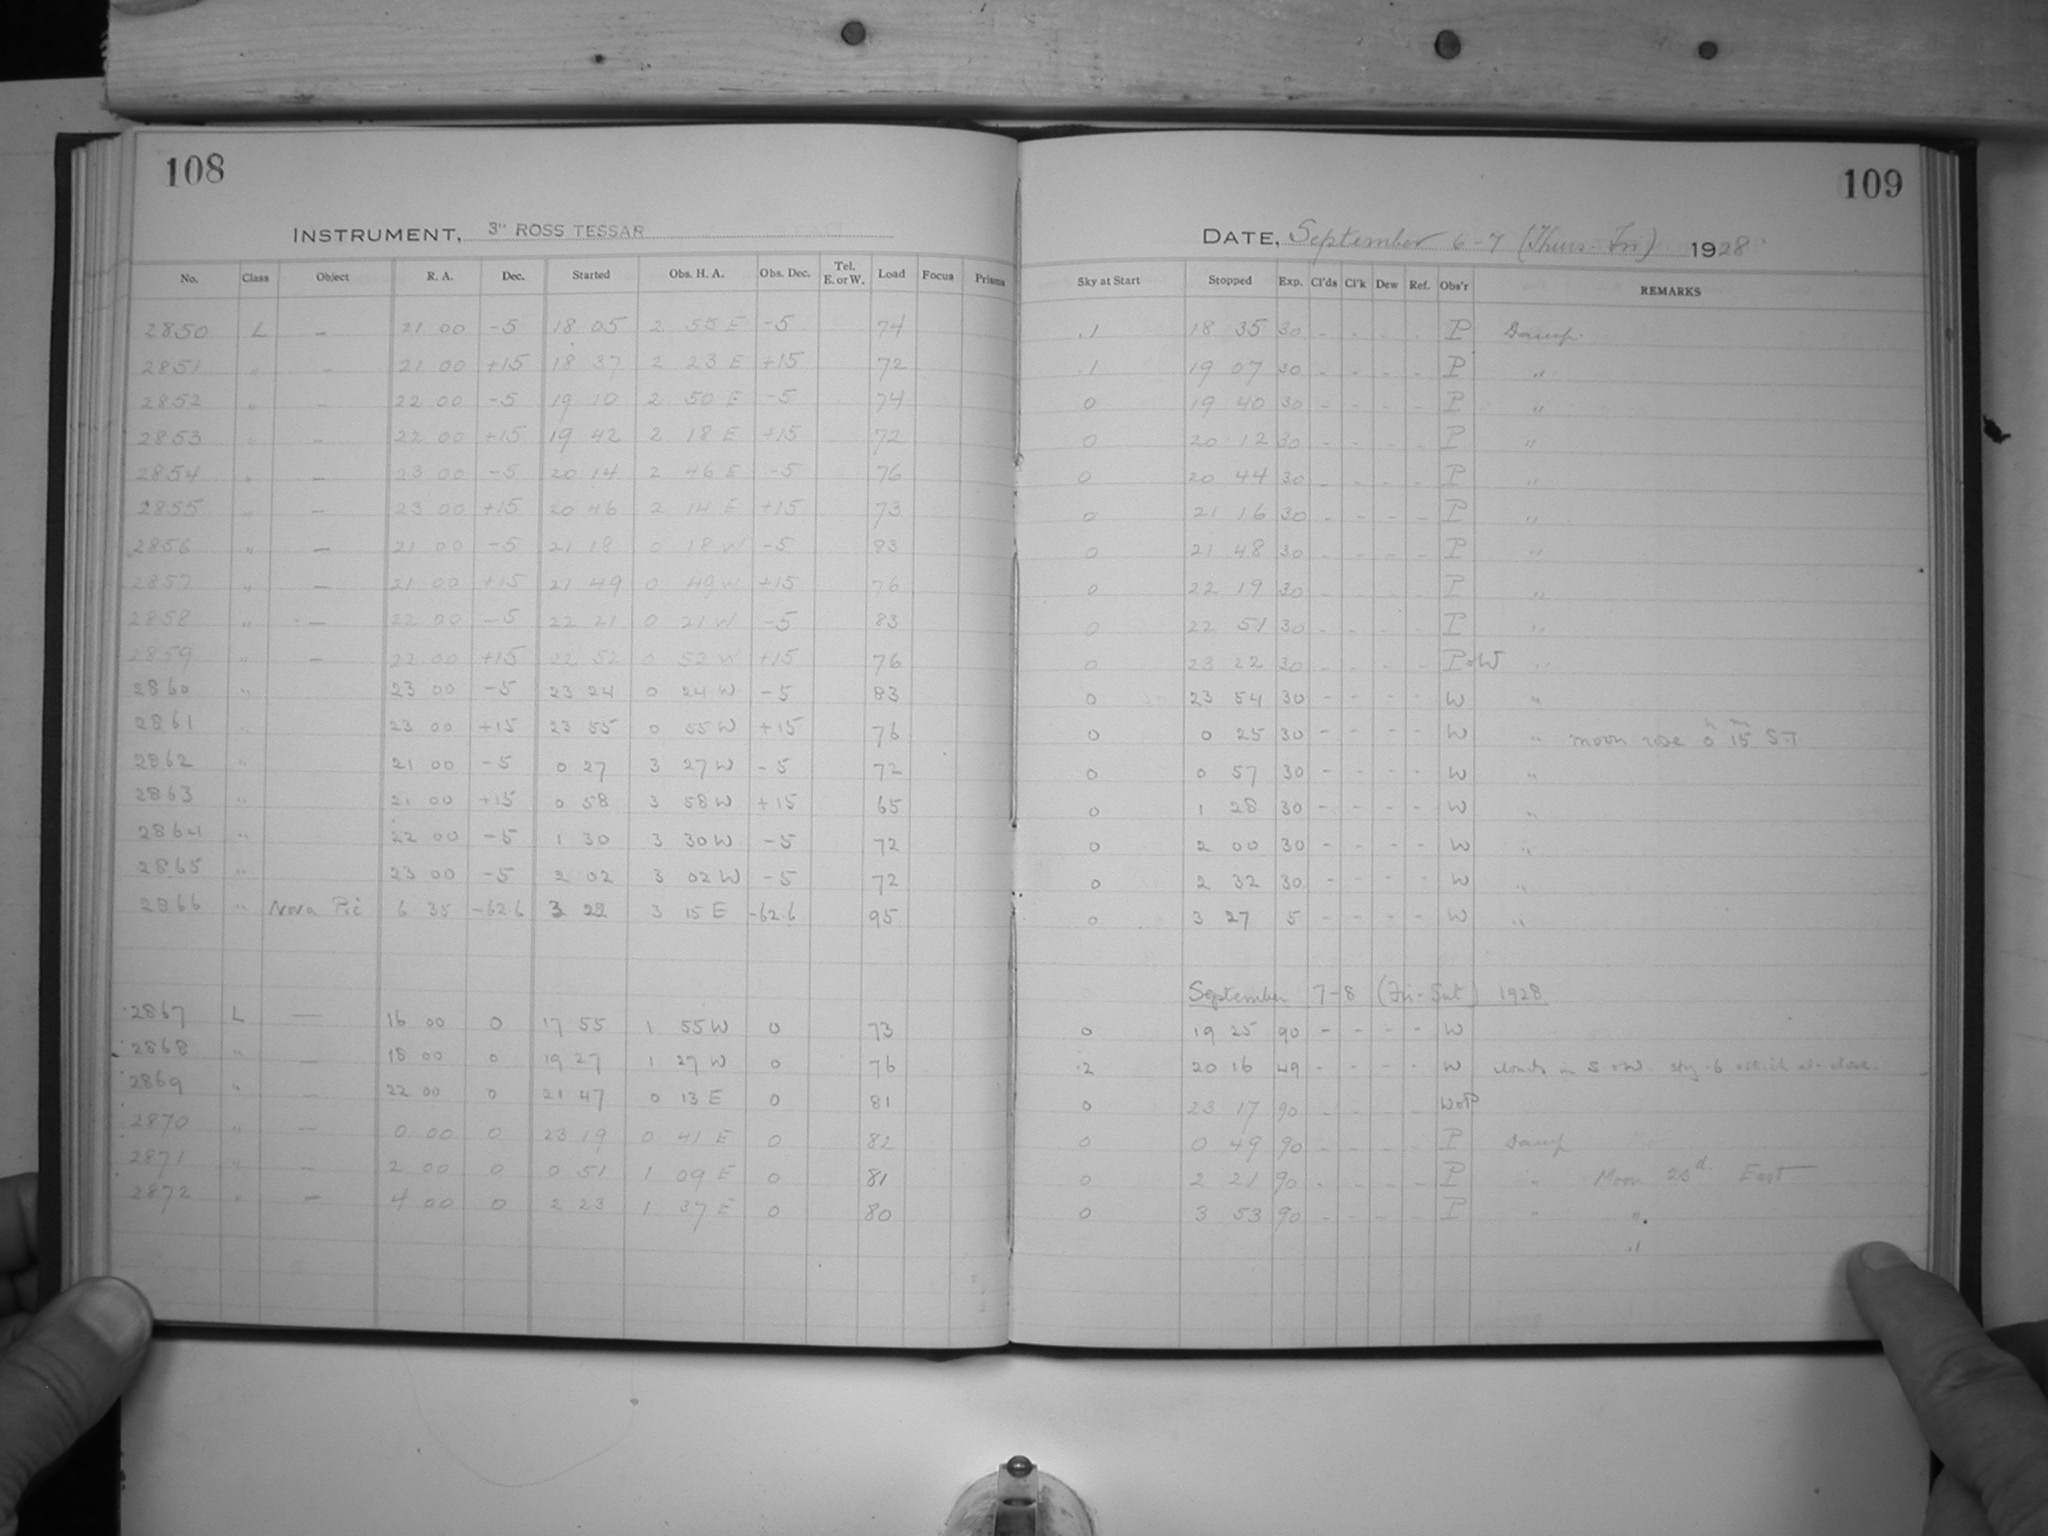 108
INSTRUMENT, 3" ROSS TESSAR
No. Class Object R. A. Dec. Started Obs. H. A. Obs. Dec. Tel. E. or W. Load Focus Prisms
2850 L — 21 00 -5 18 05 2 55 E -5 74
2851 " — 21 00 +15 18 37 2 23 E +15 72
2852 " — 22 00 -5 19 10 2 50 E -5 74
2853 " — 22 00 +15 19 42 2 18 E +15 72
2854 " — 23 00 -5 20 14 2 46 E -5 76
2855 " — 23 00 +15 20 46 2 14 E +15 73
2856 " — 21 00 -5 21 18 0 18 W -5 83
2857 " — 21 00 +15 21 49 0 49 W +15 76
2858 " — 22 00 -5 22 21 0 21 W -5 83
2859 " — 22 00 +15 22 52 0 52 W +15 76
2860 " 23 00 -5 23 24 0 24 W -5 83
2861 " 23 00 +15 23 55 0 55 W +15 76
2862 " 21 00 -5 0 27 3 27 W -5 72
2863 " 21 00 +15 0 58 3 58 W +15 65
2864 " 22 00 -5 1 30 3 30 W -5 72
2865 " 23 00 -5 2 02 3 02 W -5 72
2866 " Nova Pic 6 35 -62.6 3 22 3 15 E -62.6 95
2867 L — 16 00 0 17 55 1 55 W 0 73
2868 " — 18 00 0 19 27 1 27 W 0 76
2869 " — 22 00 0 21 47 0 13 E 0 81
2870 " — 0 00 0 23 19 0 41 E 0 82
2871 " — 2 00 0 0 51 1 09 E 0 81
2872 " — 4 00 0 2 23 1 37 E 0 80
109
DATE, September 6-7 (Thurs. Fri) 1928
Sky at Start Stopped Exp. Cl'ds Cl'k Dew Ref. Obs'r REMARKS
.1 18 35 30 - - - - P Damp.
.1 19 07 30 - - - - P "
0 19 40 30 - - - - P "
0 20 12 30 - - - - P "
0 20 44 30 - - - - P "
0 21 16 30 - - - - P "
0 21 48 30 - - - - P "
0 22 19 30 - - - - P "
0 22 51 30 - - - - P "
0 23 22 30 - - - - P & W "
0 23 54 30 - - - - W "
0 0 25 30 - - - - W " moon rose 0h 15m S.T.
0 0 57 30 - - - - W "
0 1 28 30 - - - - W "
0 2 00 30 - - - - W "
0 2 32 30 - - - - W "
0 3 27 5 - - - - W "
September 7-8 (Fri-Sat) 1928
0 19 25 90 - - - - W
.2 20 16 49 - - - - W clouds in S & W. sky .6 at close.
0 23 17 90 - - - - W & P
0 0 49 90 - - - - P Damp
0 2 21 90 - - - - P " Moon 23d. East
0 3 53 90 - - - - P " "
"